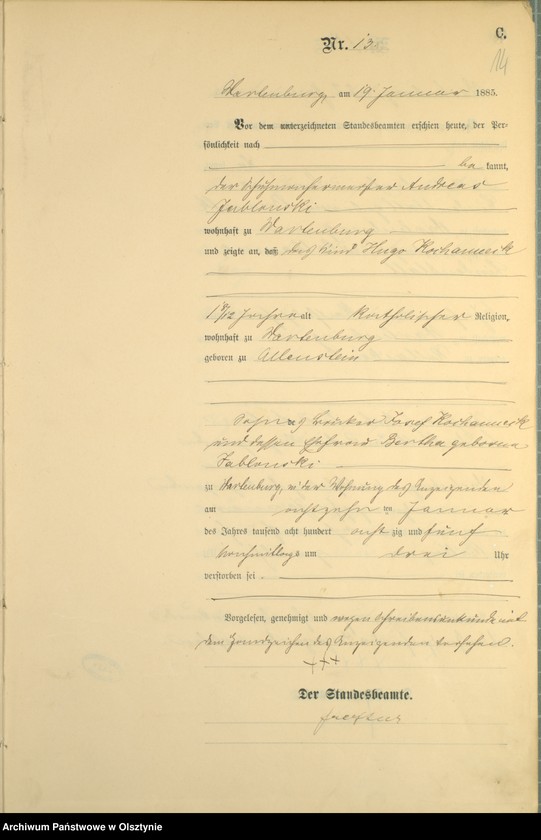 C.
Nr. 13
14
Wartenburg, am 19. Januar 1885.
Vor dem unterzeichneten Standesbeamten erschien heute, der Per-
sönlichkeit nach
be kannt,
der Schuhmachermeister Andreas
Jablonski
wohnhaft zu Wartenburg
und zeigte an, daß das Kind Hugo
1 9/12 Jahre alt katholischer Religion,
wohnhaft zu Wartenburg
geboren zu Allenstein
Sohn des Josef
und dessen Ehefrau Bertha geborene
Jablonski
zu Wartenburg, in der Wohnung des Anzeigenden
am achtzehn ten Januar
des Jahres tausend acht hundert acht zig und fünf
Nachmittags um drei Uhr
verstorben sei.
Vorgelesen, genehmigt und wegen Schreibensunkunde mit
dem Handzeichen des Anzeigenden versehen.
+++
Der Standesbeamte.
Archiwum Państwowe w Olsztynie